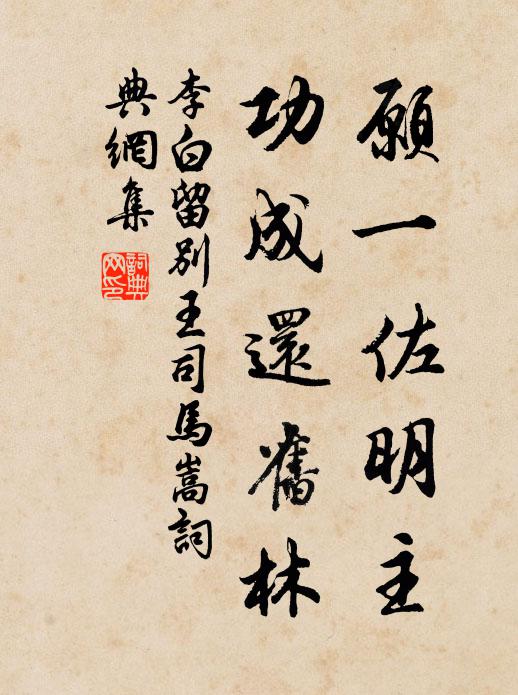 願一佐明主
功成還舊林
李白留別王司馬嵩詞
典網集
詞典網印